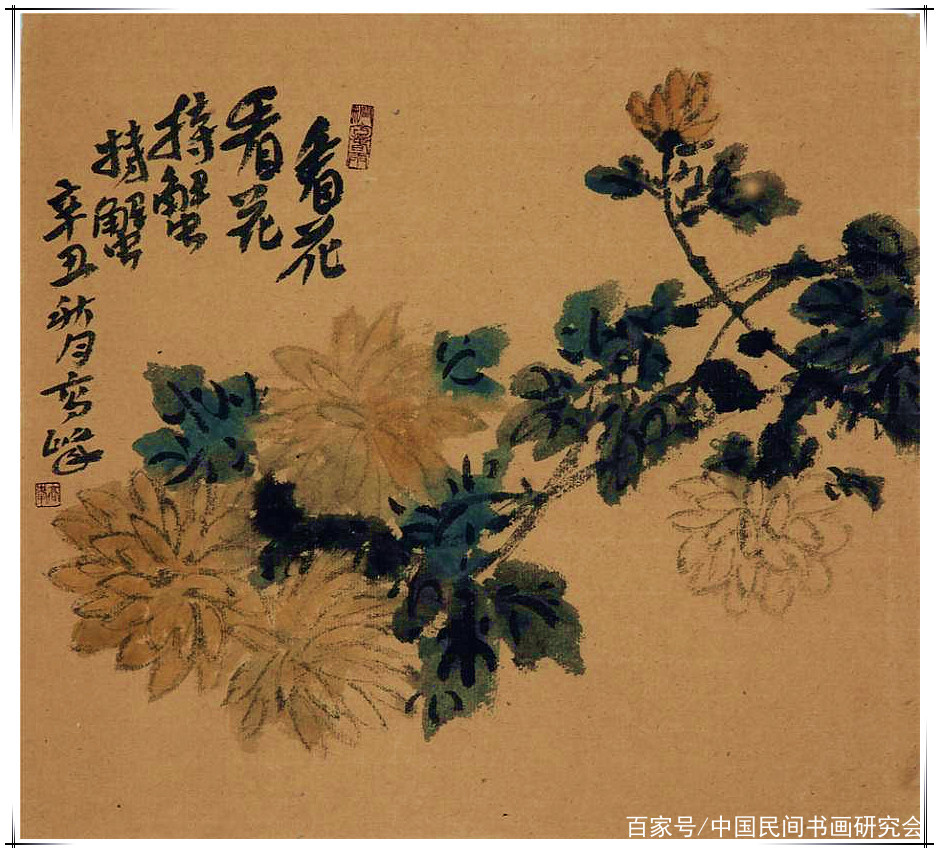 看花
看花
持蟹
持蟹
辛丑秋月高峰
百家号/中国民间书画研究会